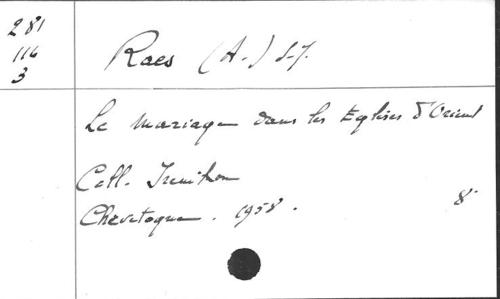 281
116
3
Raes (A.) S.J.
Le mariage dans les Eglises d'Orient
Coll. Irenikon
Chevetogne. 1958. 8°